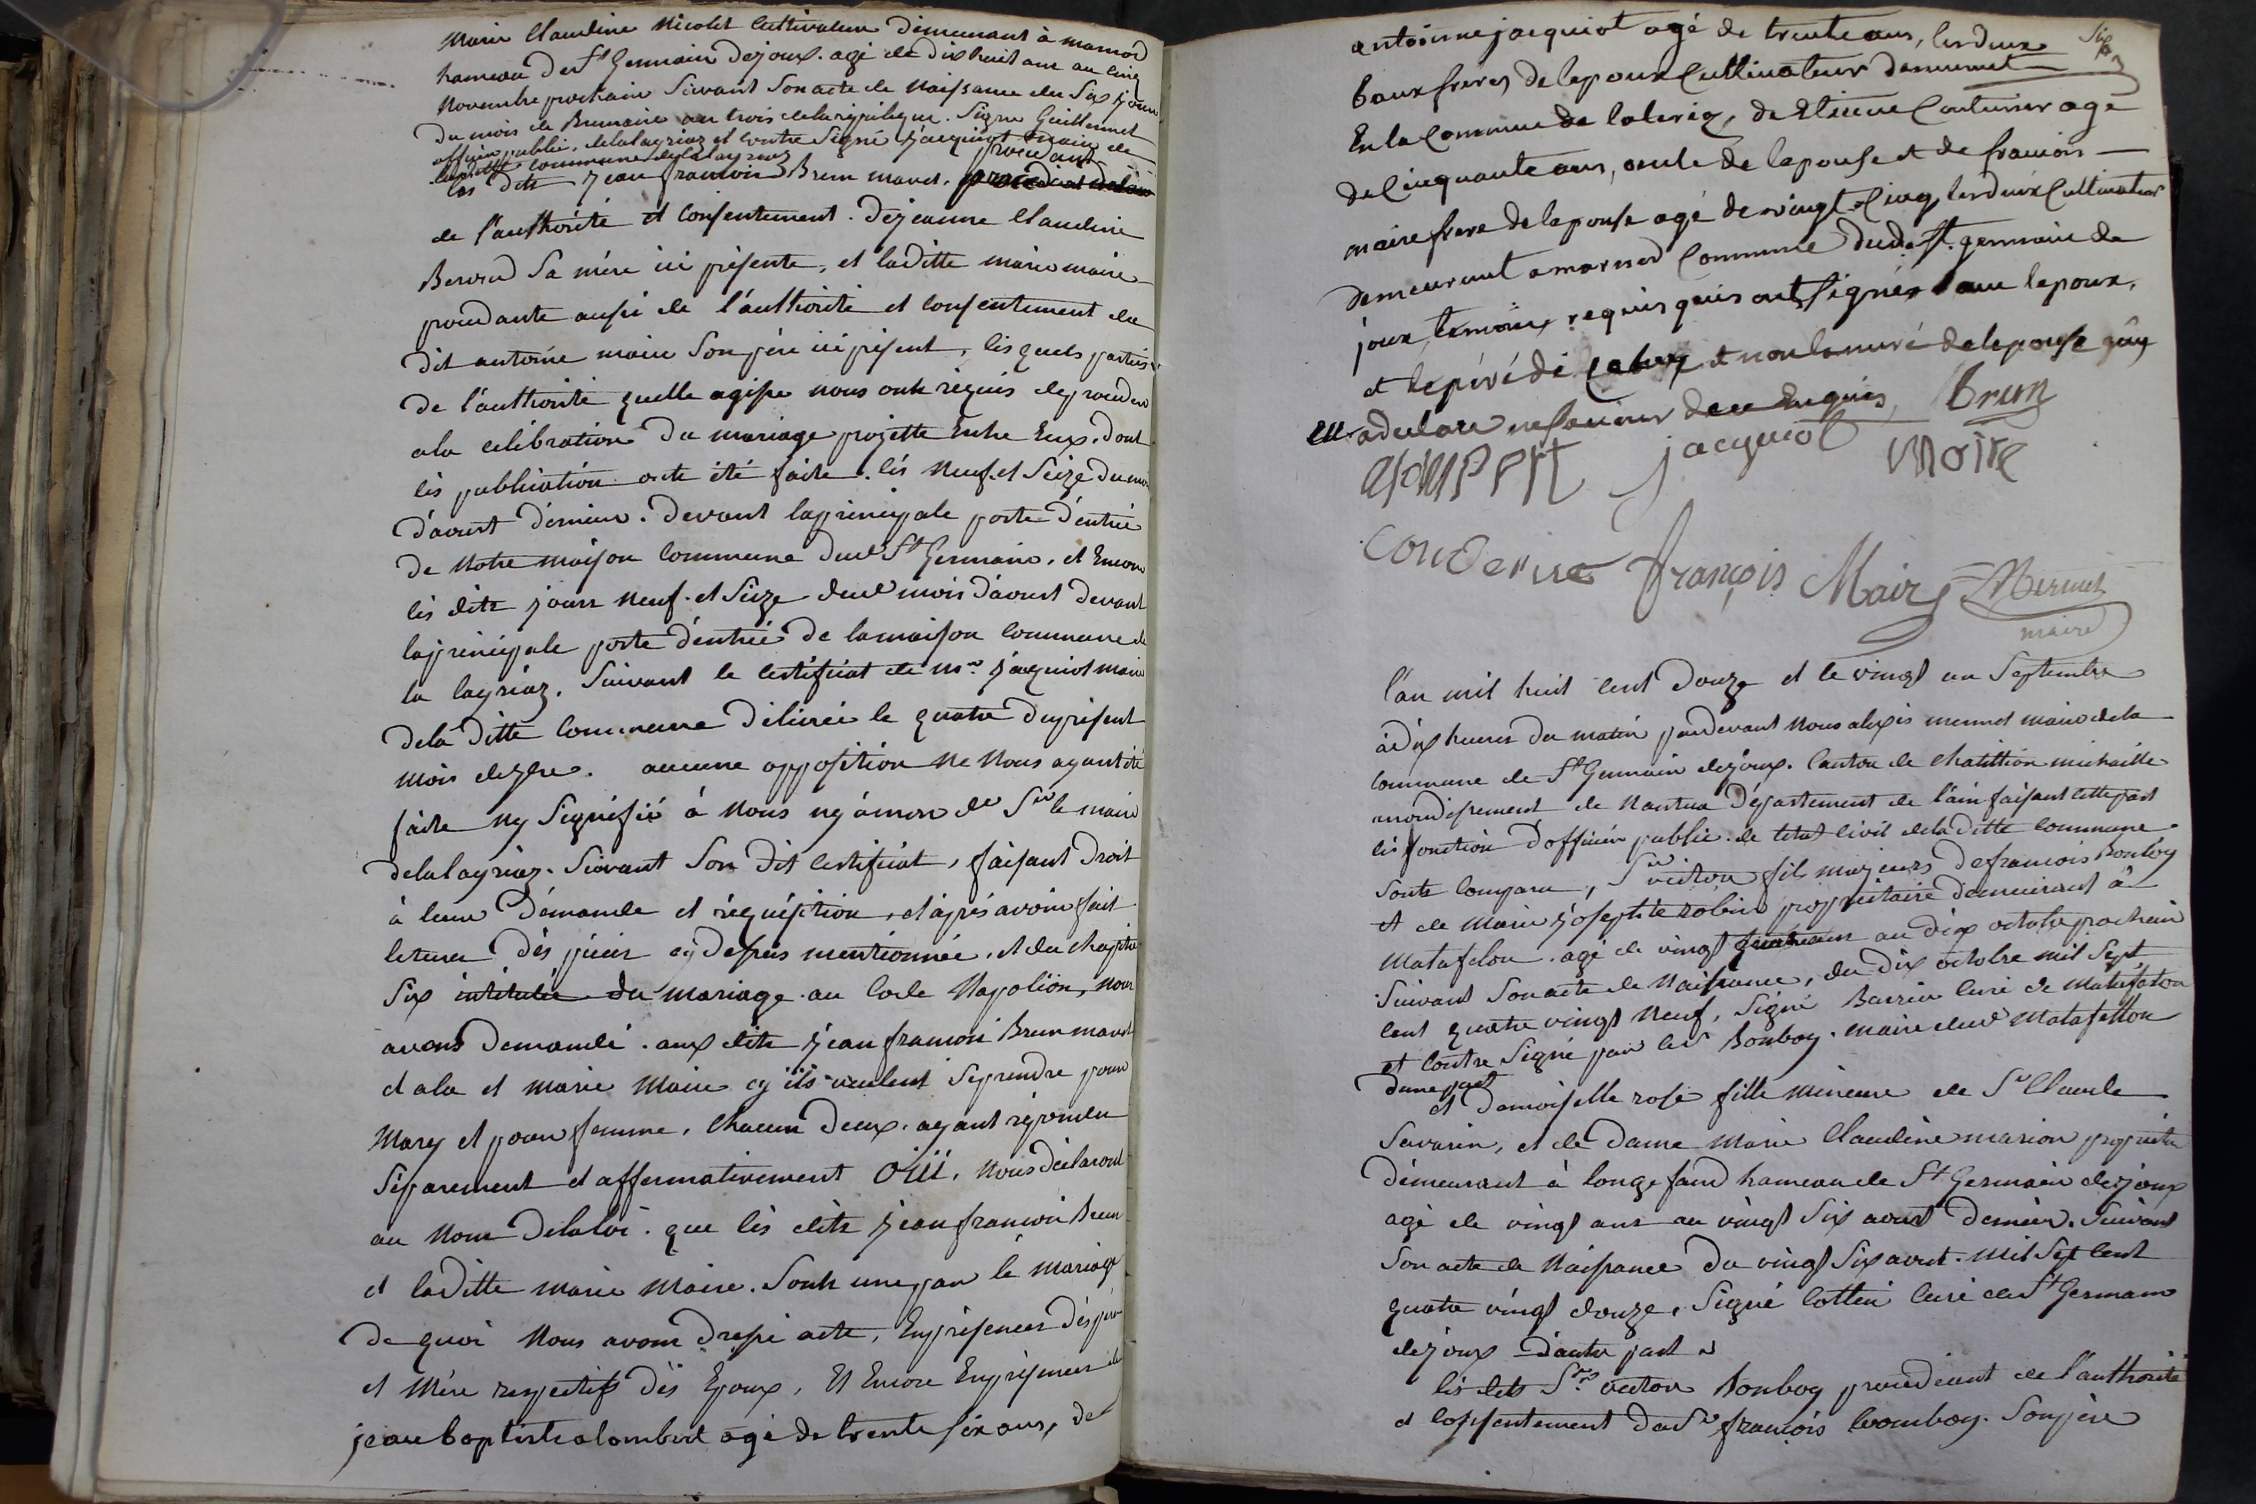 Marie Claudine Nicolet Cultivateur Demeurant à marnod
hameau de St Germain Dejoux. agé de dix huit ans au cinq
Novembre prochain Suivant Son acte de Naissance du Six jour
Du mois de Brumaire an trois de la république. Signé Guillermet
officier public, delalayriaz et contre Signé Jacquiot maire de
laditte commune delalayriaz
les dits Jean francois Brun manet, procedant
de l'authorité et Consentement. Dejeanne Claudine
Berrod Sa mère ici présente, et laditte marie maire
procdante aussi de l'authorité et consentement du
dit antoine maire Son père ici présent, lesquels parties
de l'authorité quelle agisse nous ont réquis de proceder
a la célébration du mariage projetté Entre Eux. Dont
lés publication onts été faite. lés neuf et Seize du moi
d'aoust dérnier. Devant laprincipale porte d'entrée
de Notre maison Commune dud St Germain, et Encore
lés dits jours neuf et Seize dud mois d'aoust devant
laprincipale porte d'entrée de la maison Commune de
la layriaz, Suivant le certificat de mr. Jacquiot maire
dela ditte Commune délivré le quatre duprésent
mois de 7bre. aucune oppofition ne nous ayant été
faite ny Signifié à nous ny à mon dt Sr le maire
delalayriaz. Suivant Son dit certificat, faisant droit
à leur démande et réquisition, et après avoir fait
lecture dés pièces cy dessus mentionnée, et du chapitre
Six intitulée du mariage au Code Napoléon, nous
avons demandé aux dits Jean francois Brun manet
et ala et marie Maire cy ils veulent Seprendre pour
Mary et pour femme, Chacun Deux ayant répondu
Séparement et affermativement oüi, nous déclarons
au nom Delaloi que lés dits Jean francois Brun
et laditte marie Maire. Sont unepar le mariage
de quoi nous avons Dressé acte, Enprésences dés père
et Mère respectifs dés Epoux, Et Encore Enprésences de
jean baptiste alombert agé de trente six ans, de
Six
antoinne jacquiot agé de trente ans, les deux
beaux freres de lepoux Cultivateur demeurnt
En la Commune de laleriaz, de Etienne Couturier age
de Cinquante ans, oncle de lepouse et de francois
maire frere de lepouse agé de vingt Cinq les deux Cultivateur
demeurant a marnod Commune dudt St. germain de
joux, temoins requis quis ont Signés avec lepoux,
et le péré de et non la meré de lepouse quy
en. a declare ne savoir de ce Enquis, Brun
alompert jacquiot Moire
Couterier françois Maire Mermet
maire
L'an mil huit cent Douze et le vingt un Septembre
à dix heures du matin pardevant nous alexis mermet maire dela
commune de St Germain dejoux. Canton de Chatillion michaille
arrondissement de Nantua Département de l'ain faisant cette part
lés fonction D'officier public de létat Civil dela ditte Commune
Sonts comparu, Sr victor fils majeurs de francois Bonboy
et de Marie Josephte robin propriétaire demeurant à
Matafelon. agé de vingt au dix octobre prochain
Suivant Son acte de Naissance, du Dix octobre mil Sept
cent quatre vingt neuf, Signé Barrin Curé de Matafelon
et contre Signé par led Bonboy. maire dud Matafellon
dune part
et Demoiselle rose fille mineure de Sr Claude
Savarin, et de Dame marie Claudine marion propriétre
demeurant à longe fand hameau de St Germain dejoux
agé de vingt ans au vingt Six aout Dernier. Suivant
Son acte de Naissance du vingt Six aout. mil Sept cent
quatre vingt douze, Signé Cottin Curé de St Germain
dejoux D'autre part
lés dits Srs victor Bonboy procédant de l'authorité
et Conssentement du Sr françois bonboy. Sonpère